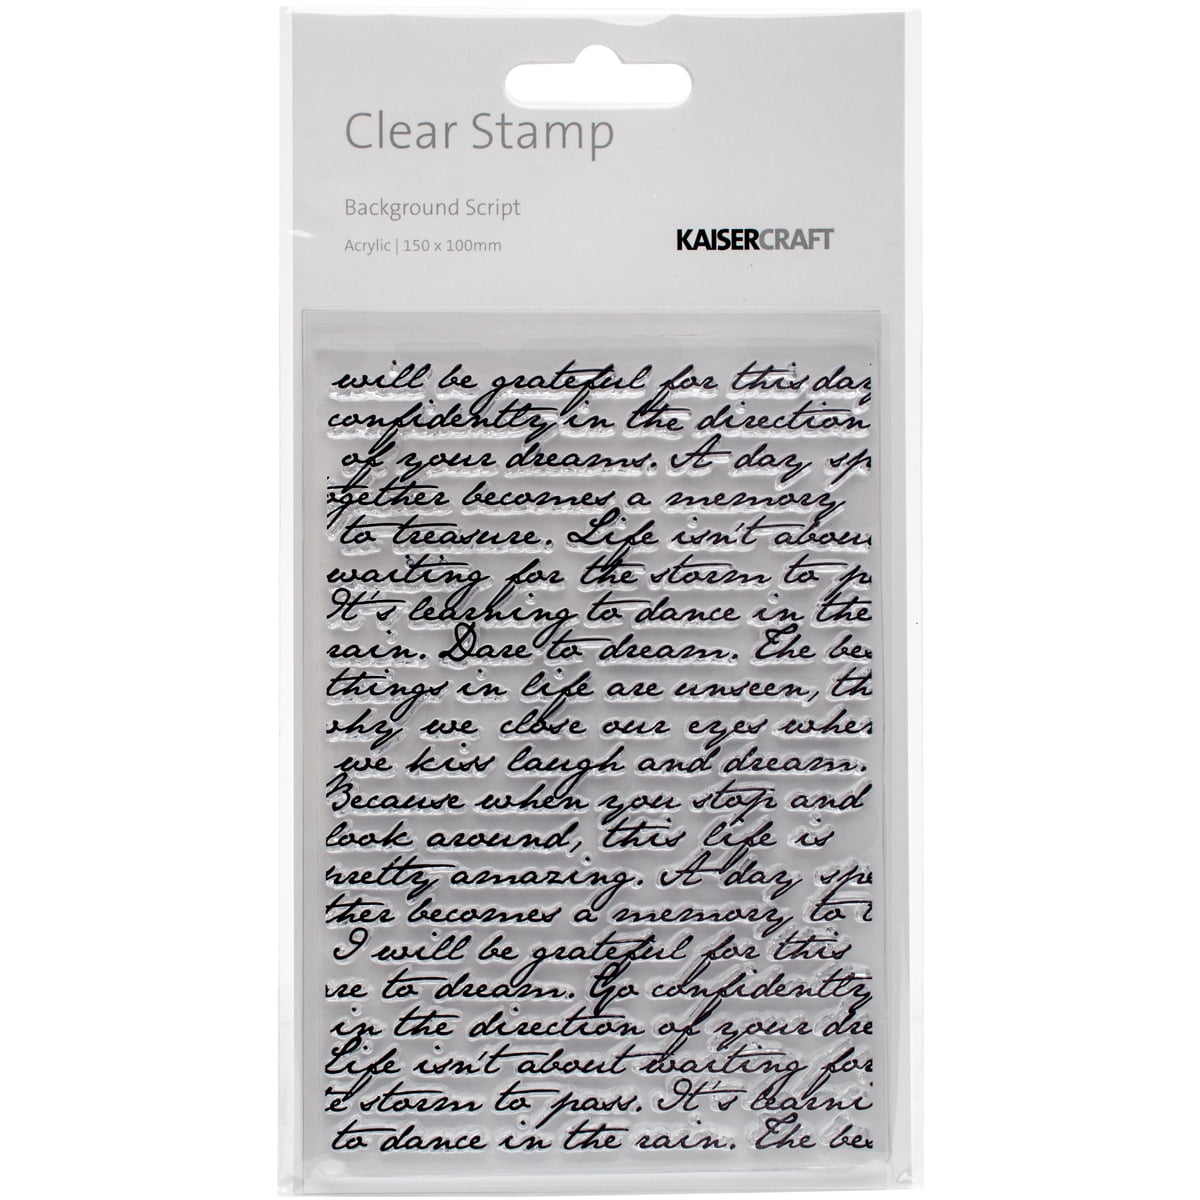 Clear Stamp
Background Script
Acrylic | 150 x 100mm
KAISERCRAFT
will be grateful for this day
confidently in the direction
of your dreams. A day sp
ogether becomes a memory
to treasure. Life isn't about
waiting for the storm to p
It's learning to dance in the
rain. Dare to dream. The bes
things in life are unseen, th
why we close our eyes when
we kiss laugh and dream.
Because when you stop and
look around, this life is
pretty amazing. A day spe
ther becomes a memory to t
I will be grateful for this
are to dream. Go confidently
in the direction of your dre
Life isn't about waiting for
e storm to pass. It's learni
to dance in the rain. The bes